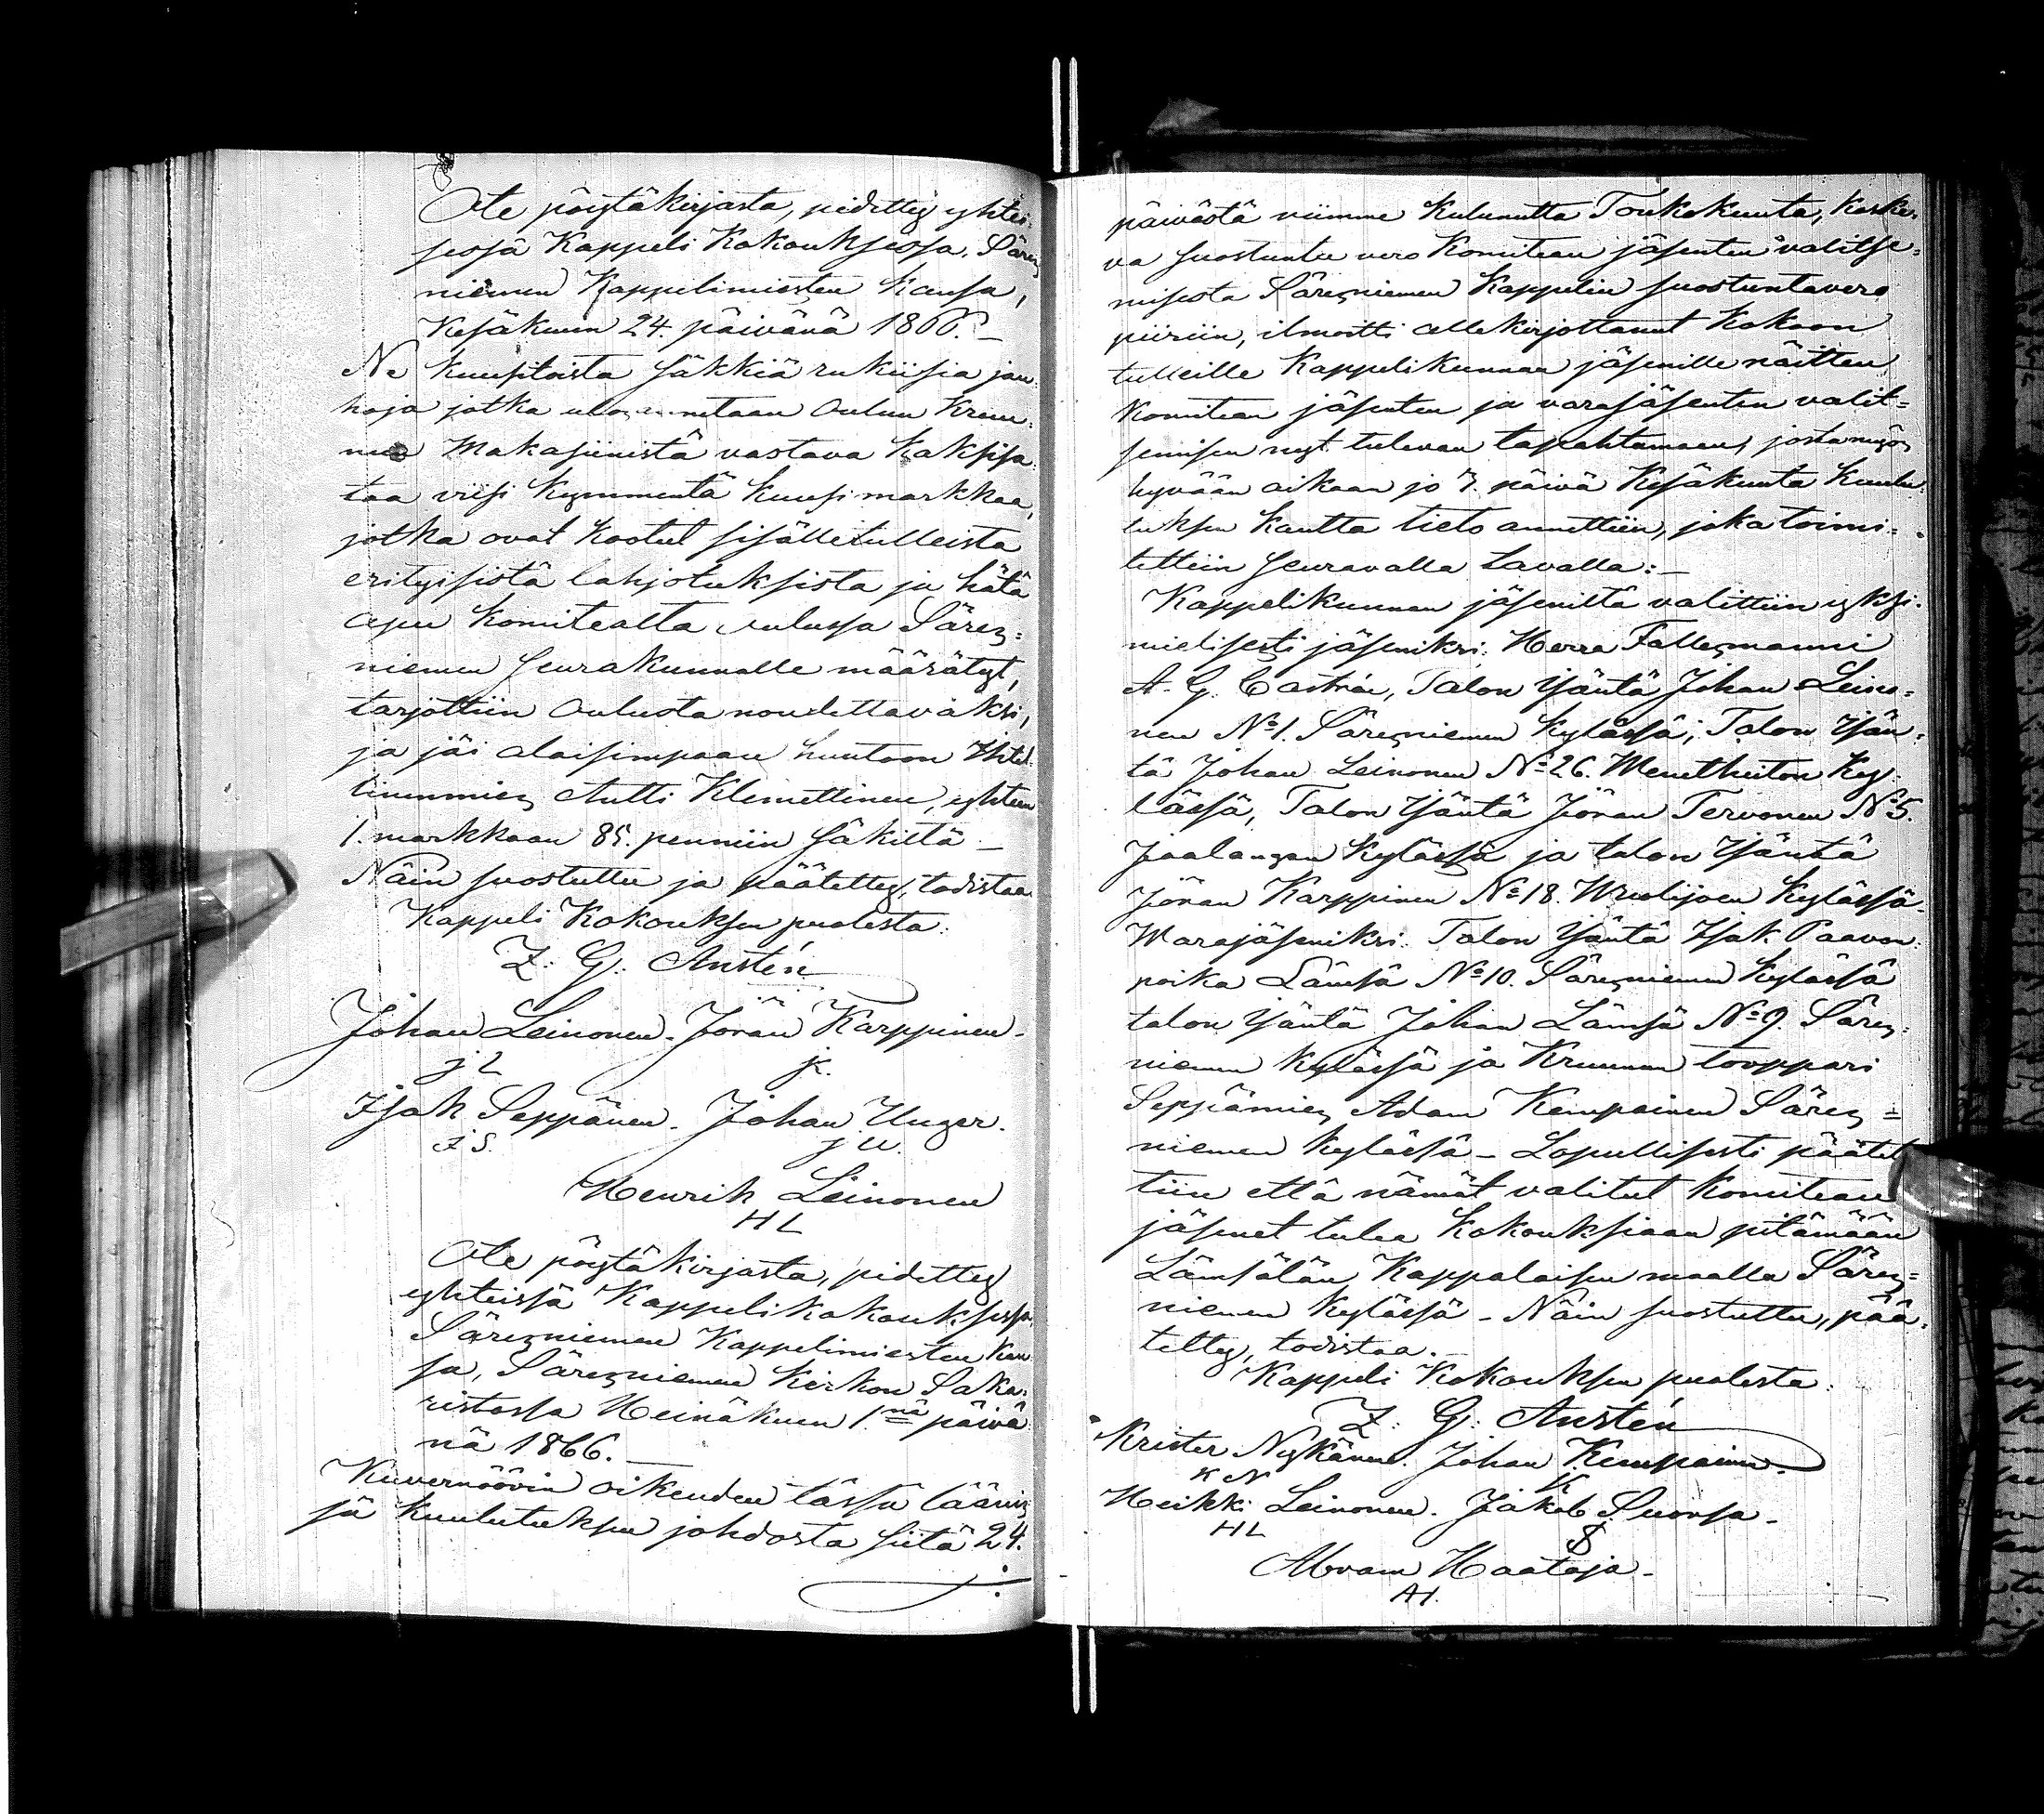 Ote pöytäkirjasta, pidetty yhtei-
sessä Kappeli Kokouksessa, Säres
niemen Kappelimiesten kansa,
Kesäkuun 24. päivänä 1866.
Ne kuusitoista säkkiä rukiisia jau-
hoja jotka ulos annetaan Oulun Kruu-
nun Makasiinista vastava kaksisa-
taa viisi kymmentä kuusi markkaa,
jotka ovat kootut sisälletulleista
erityisistä lahjotuksista ja hätä
apu komitealta Oulussa Säres=
niemen seurakunnalle määrätyt,
tarjottiin Oulusta noudettavaksi,
ja jäi alaisimpaan huutoon Ittel
linnmies Antti Klemettinen, yhteen
1. markkaan 85. penniin säkiltä _
Näin suostuttu ja päätetty, todistaa
Kappeli Kokouksen puolesta:
Z: G: Austén
Johan Leinonen. Jöran Karppinen.
JL JK.
Isak Seppänen. Johan Unger.
I S. J U.
Henrik Leinonen
HL
Ote pöytäkirjasta, pidetty
yhteissä Kappelikokouksessa
Säresniemen Kappelimiesten kan
sa, Säresniemen kirkon Saka-
ristossa Heinäkuun 1.nä päivä
nä 1866. _
Kuvernöövin oikeuden tässä läänis
sä kuulutuksen johdosta siitä 24.
päivästä viimme kulunutta Toukokuuta, koske-
va suostuntu vero Komitean jäsenten valitse=
misesta Säresniemen Kappelin suostuntavero
piiriin, ilmoitti allekirjottanut kokoon
tulleille Kappelikunnan jäsenille näitten
Komitean jäsenten ja varajäsenten valit=
semisen nyt tulevan tapahtamaan, josta myös
hyvään aikaan jo 7. päivä Kesäkuuta kuulu-
tuksen kautta tieto annettiin, joka toimi=
tettiin seuravalla tavalla:_
Kappelikunnan jäseniltä valittiin yksi-
mielisesti jäseniksi: Herra Fallesmanni
A. G. Castrén, Talon Isäntä Johan Leino=
nen No 1. Säresniemen kylässä; Talon Isän-
tä Johan Leinonen No 26. Manethiiton Ky-
lässä, Talon Isäntä Jöran Tervonen No 5.
Jaalangan kylässä ja talon Isäntä
Jöran Karppinen No 18. Wuolijoen kylässä.
Warajäseniksi: Talon Isäntä Isak Paavon-
poika Lämsä No 10. Säresniemen kylässä
talon Isäntä Johan Lämsä No 9. Säres-
niemen kylässä ja Kruunun torppari
Seppämies Adam Kemppainen Säres=
niemen kylässä _ Lopullisesti päätet
tiin että nämät valitut Komitean
jäsenet tulee kokouksiaan pitämään
Lämsälän Kappalaisen maalla Säres=
niemen kylässä _ Näin suostuttu, pää-
tetty, todistaa.
Kappeli Kokouksen puolesta:
Z: G: Austén
Krister Nykänen. Johan Kemppainen.
K N JK
Heikki Leinonen. Jakob Suorsa.
HL JS
Abram Haataja.
AH.